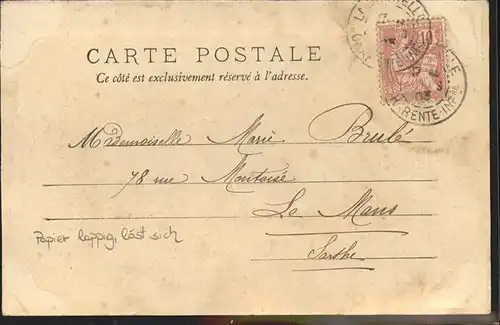 CARTE POSTALE
Ce côté est exclusivement réservé à l'adresse.
10
CHARENTE-INFRE
03
Mademoiselle Marie Brulé
78 rue Montoise
Le Mans
Sarthe
Papier lappig, löst sich